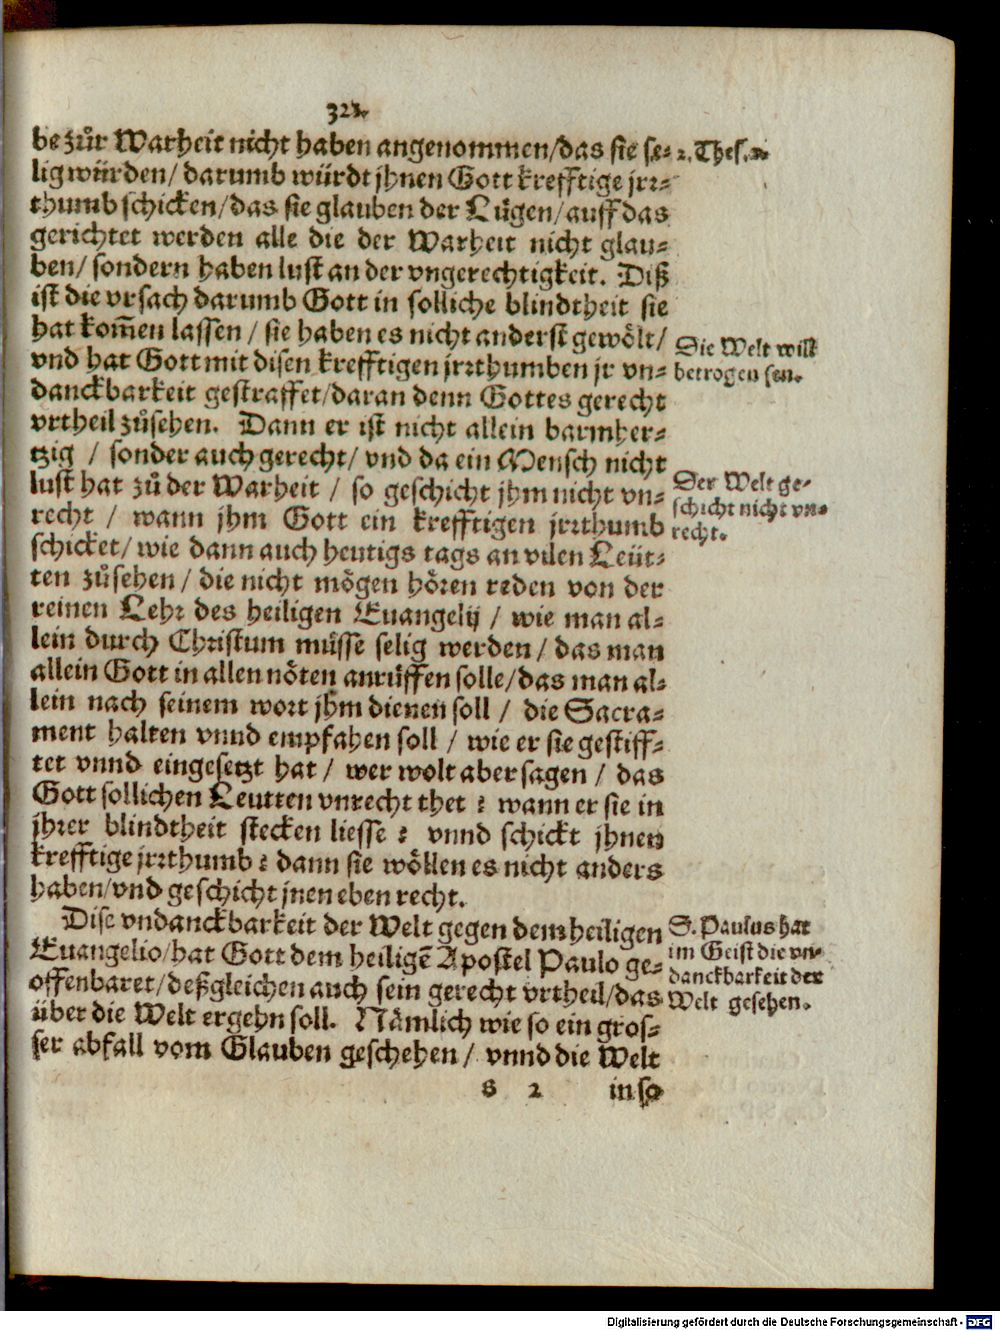 321.
be zuͦr Warheit nicht haben angenommen/das sie se-
lig würden/ darumb würdt jhnen Gott krefftige jrr-
thumb schicken/das sie glauben der Lügen/auff das
gerichtet werden alle die der Warheit nicht glau-
ben/ sondern haben lust an der vngerechtigkeit. Diß
ist die vrsach darumb Gott in solliche blindtheit sie
hat kom̃en lassen / sie haben es nicht anderst gewoͤlt/
vnd hat Gott mit disen krefftigen jrrthumben jr vn-
danckbarkeit gestraffet/daran denn Gottes gerecht
vrtheil zuͦsehen. Dann er ist nicht allein barmher-
tzig / sonder auch gerecht/ vnd da ein Mensch nicht
lust hat zuͦ der Warheit / so geschicht jhm nicht vn-
recht / wann jhm Gott ein krefftigen jrrthumb
schicket/ wie dann auch heutigs tags an vilen Leüt-
ten zuͦsehen / die nicht moͤgen hoͤren reden von der
reinen Lehr des heiligen Euangelij / wie man al-
lein durch Christum müsse selig werden / das man
allein Gott in allen noͤten anrüffen solle/das man al-
lein nach seinem wort jhm dienen soll / die Sacra-
ment halten vnnd empfahen soll / wie er sie gestiff-
tet vnnd eingesetzt hat / wer wolt aber sagen / das
Gott sollichen Leutten vnrecht thet ? wann er sie in
jhrer blindtheit stecken liesse ? vnnd schickt jhnen
krefftige jrrthumb ? dann sie woͤllen es nicht anders
haben/vnd geschicht jnen eben recht.
Dise vndanckbarkeit der Welt gegen dem heiligen
Euangelio/hat Gott dem heiligẽ Apostel Paulo ge-
offenbaret/deßgleichen auch sein gerecht vrtheil/das
über die Welt ergehn soll. Naͤmlich wie so ein gros-
ser abfall vom Glauben geschehen / vnnd die Welt
s 2 in so
2. Thes. 2.
Die Welt will
betrogen sein.
Der Welt ge-
schicht nicht vn-
recht.
S. Paulus hat
im Geist die vn-
danckbarkeit der
Welt gesehen.
Digitalisierung gefördert durch die Deutsche Forschungsgemeinschaft - DFG